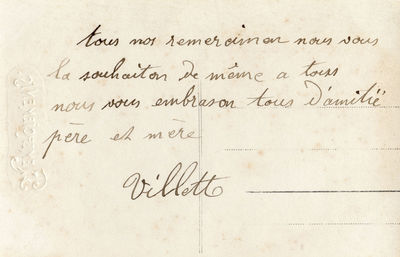 tous nos remerciman nous vous
la souhaiton de même a tous
nous vous embrason tous D'amitié
père et mère
Villette